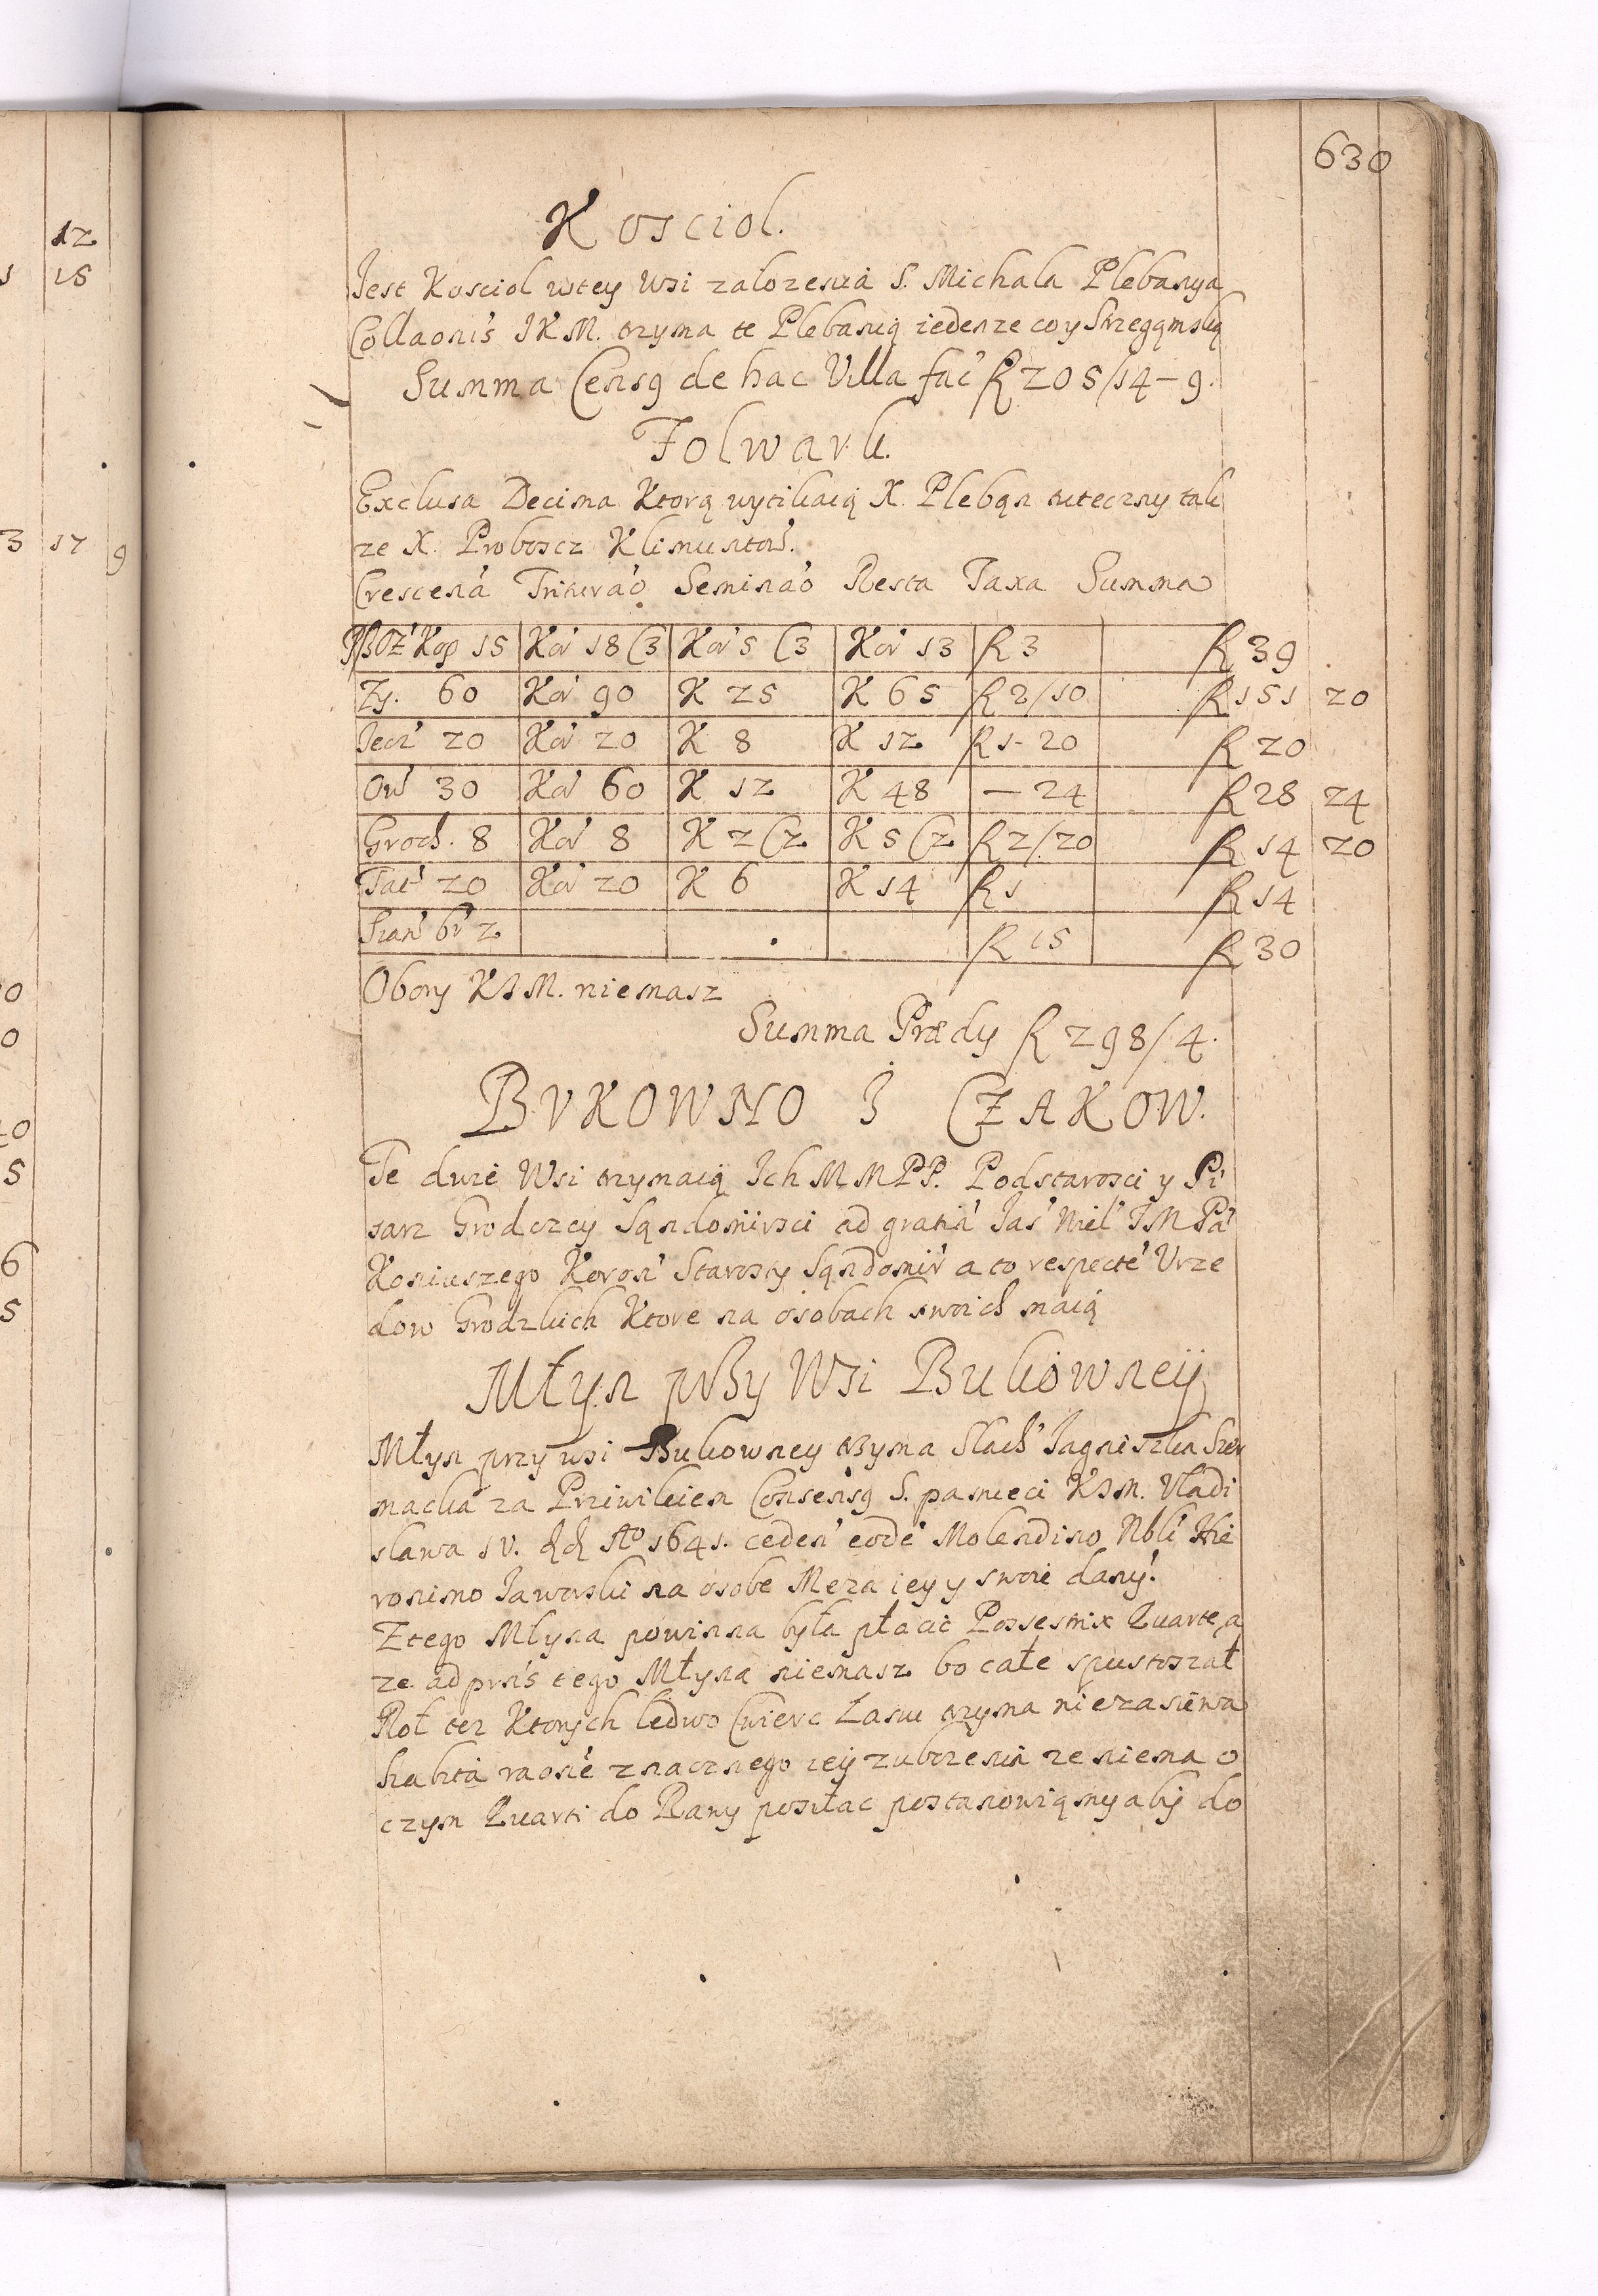 12
15
3 17 9
0
0
5
6
5
630
Kosciol.
Jest Kosciol wtey Wsi zalozenia S. Michala Plebanya
Collaonis JKM. trzyma te Plebanią iedenze coy Strzegąmską
Summa Censq de hac Villa fac fl 205/14-9.
Folwark.
Exclusa Decima Ktorą wytikaią X. Plebąn tuteczny tak
ze X. Proboscz Klimuntow.
Crescena Triturao Seminao Resta Taxa Summa
Kop 15 Kor 18 (3 Kor 5 (3 Kor 13 fl 3 fl 39
Zy. 60 Kor 90 K 25 K 65 fl 2/10 fl 151 20
Jecz 20 Kor 20 K 8 K 12 fl 1-20 fl 20
Ow 30 Kor 60 K 12 K 48 — 24 fl 28 24
Groch. 8 Kor 8 K 2 (2 K 5 (2 fl 2/20 fl 14 20
Tat 20 Kor 20 K 6 K 14 fl 1 fl 14
Sian br 2 fl 15 fl 30
Obory KJM. niemasz
Summa Prædy fl 298/4.
BVKOWNO J CZAKOW.
Te dwie Wsi trzymaią Ich MMPP. Podstarosci y Pi
sarz Grodzcy Sąndomirsci ad gratia Jas Wiel JM Pa
Koniuszego Koron Starosty Sąndomir a to respecte Vrze
dow Grodzkich Ktore na osobach swoich maią
Młyn przy Wsi Bukowneij
Młyn przy wsi Bukowney trzyma Slach Jagniszka Szer
macka za Priwileien Consensq S. pamieci KJM. Vladi
slawa IV. Ao 1641. ceden eode Molendino Nbli Hie
ronimo Jaworski na osobe Meza iey y swoie dany.
Ztego Mlyna powinna była płacic Possestrix Quarte, a
ze ad prns tego Młyna niemasz bo całe spustoszał
Rol tez Ktorych ledwo Cwierc Lanu trzyma niezasiewa
habita raone znacznego iey zubozenia ze niema o
czym Quarti do Rawy posyłac postanowiąmy abij do